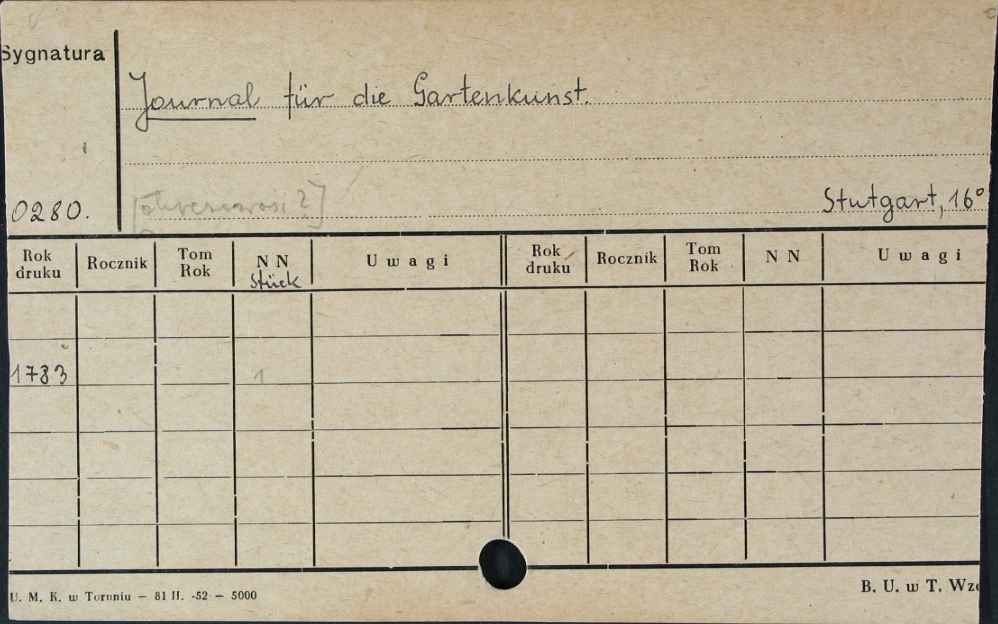 Sygnatura
Journal für die Gartenkunst.
0280.
Stutgart, 16°
Rok druku Rocznik Tom Rok NN Uwagi Rok druku Rocznik Tom Rok NN Uwagi
Stück
1783 1
U. M. K. w Toruniu — 81 II. -52 — 5000
B. U. w T. Wz